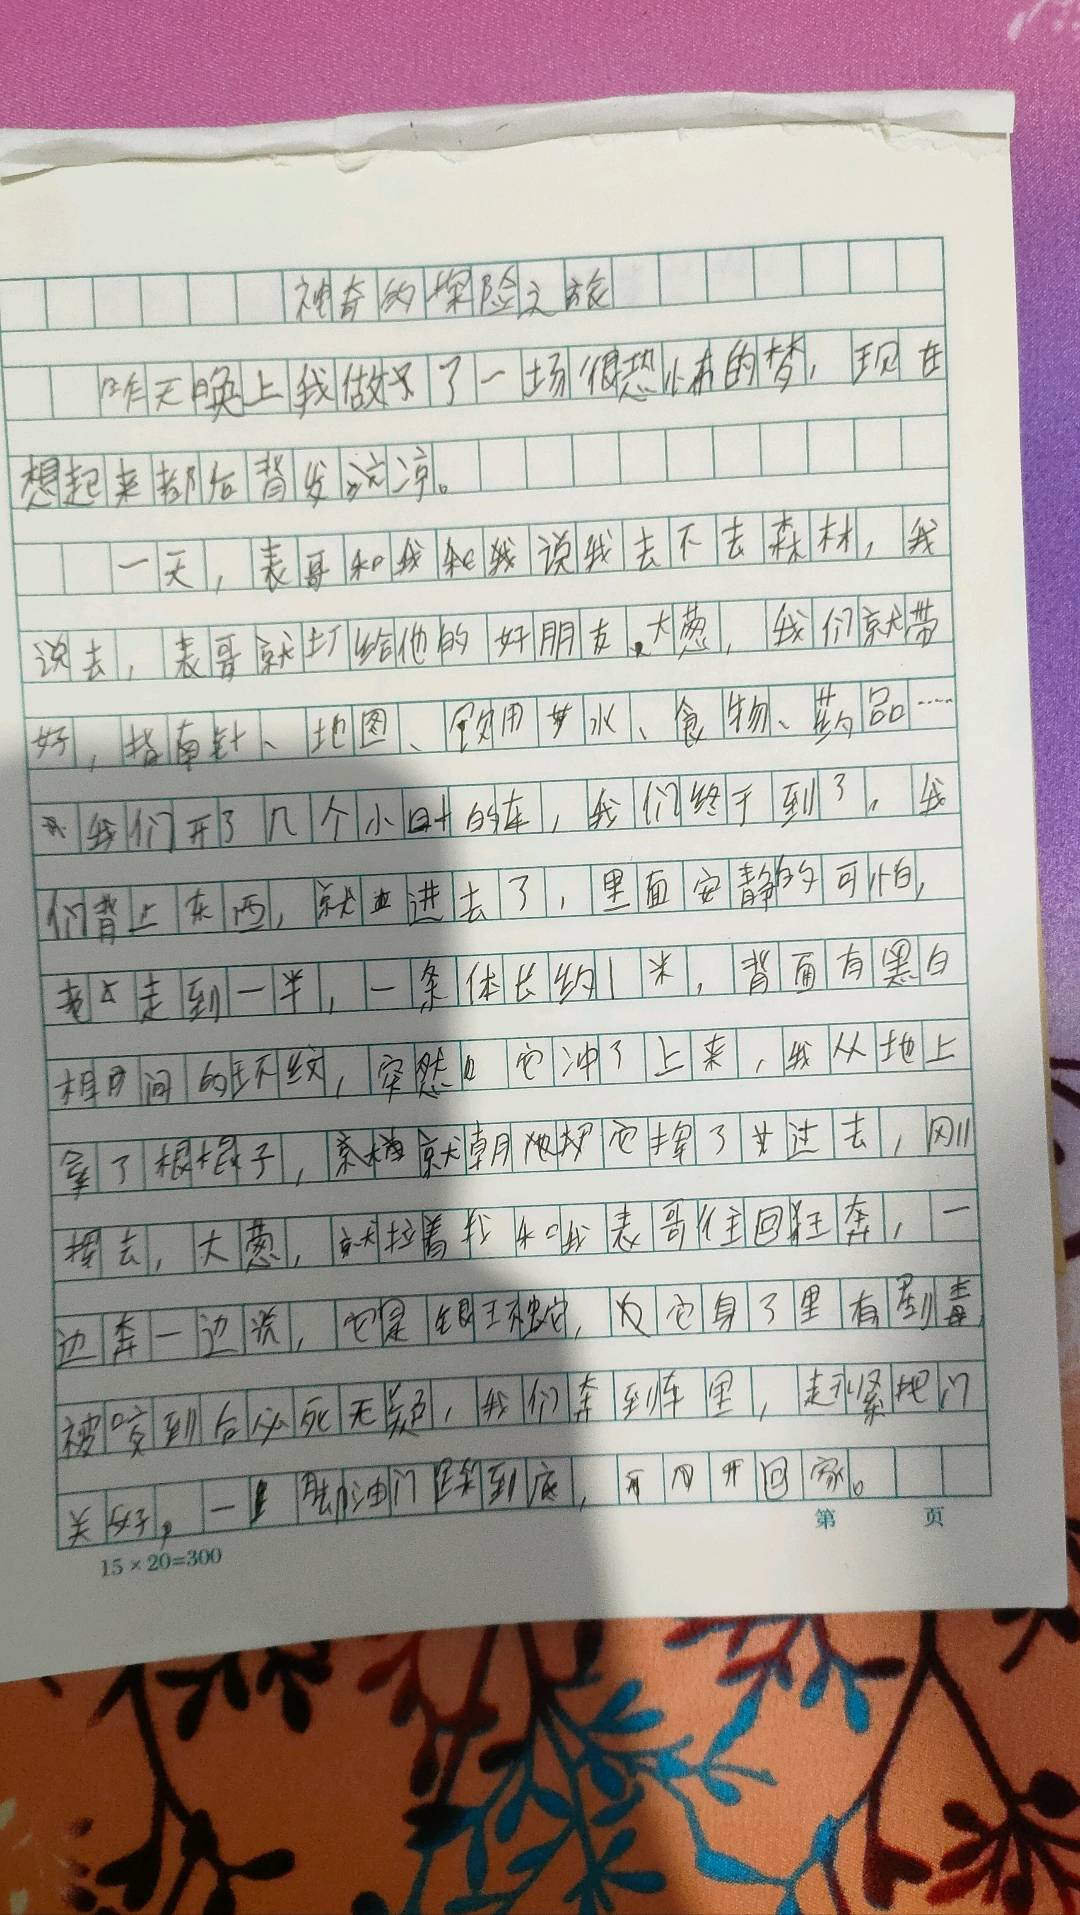 神奇的探险之旅
昨天晚上我做了一场很恐怖的梦，现在
想起来都后背发凉。
一天，表哥和我说我去不去森林，我
说去，表哥就打给他的好朋友大葱，我们就带
好，指南针、地图、饮用水、食物、药品……
我们开了几个小时的车，我们终于到了。我
们背上东西，就进去了，里面安静的可怕，
走到一半，一条体长约1米，背面有黑白
相间的环纹，突然它冲了上来，我从地上
拿了根棍子，就朝它挥了过去，刚
挥去，大葱，就拉着我和表哥往回狂奔，一
边奔一边说，它是银环蛇，它身子里有剧毒
被咬到后必死无疑，我们奔到车里，赶紧把门
关好，一脚油门踩到底，开回家。
15×20=300
第 页